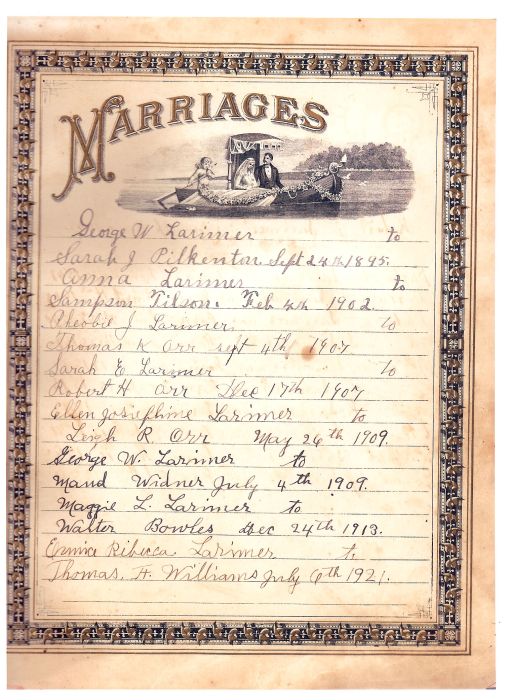 MARRIAGES
George W Larimer to
Sarah J Pilkenton Sept 24th 1895.
Anna Larimer to
Sampson Tilson. Feb 4th 1902.
Pheobie J Larimer to
Thomas K Orr sept 4th 1907
Sarah E Larimer to
Robert H Orr Dec 17th 1907
Ellen Josiephine Larimer to
Leigh R. Orr May 26th 1909.
George W. Larimer to
Maud Widner July 4th 1909.
Maggie L. Larimer to
Walter Bowles Dec 24th 1913.
Ribecca Larimer to
Thomas. H. Williams July 6th 1921.